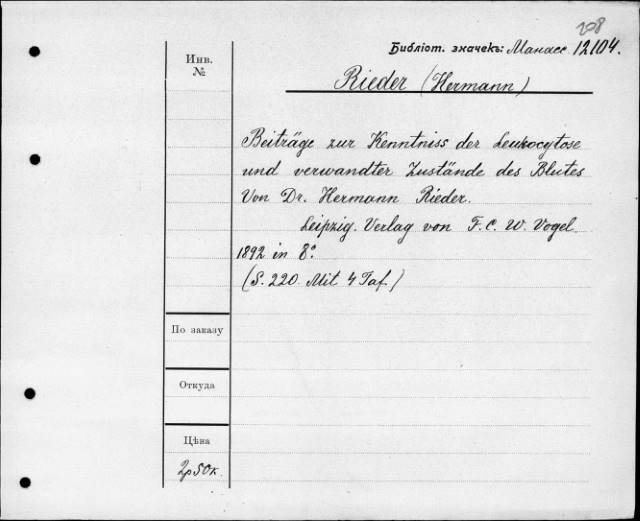 208
Библіот. значекъ: Манасс. 12104.
Инв.
№
Rieder (Hermann)
Beiträge zur Kenntniss der Leukocytose
und verwandter Zustände des Blutes
Von Dr. Hermann Rieder.
Leipzig. Verlag von F. C. W. Vogel
1892 in 8°.
(S. 220. Mit 4 Taf.)
По заказу
Откуда
Цѣна
2р50к.